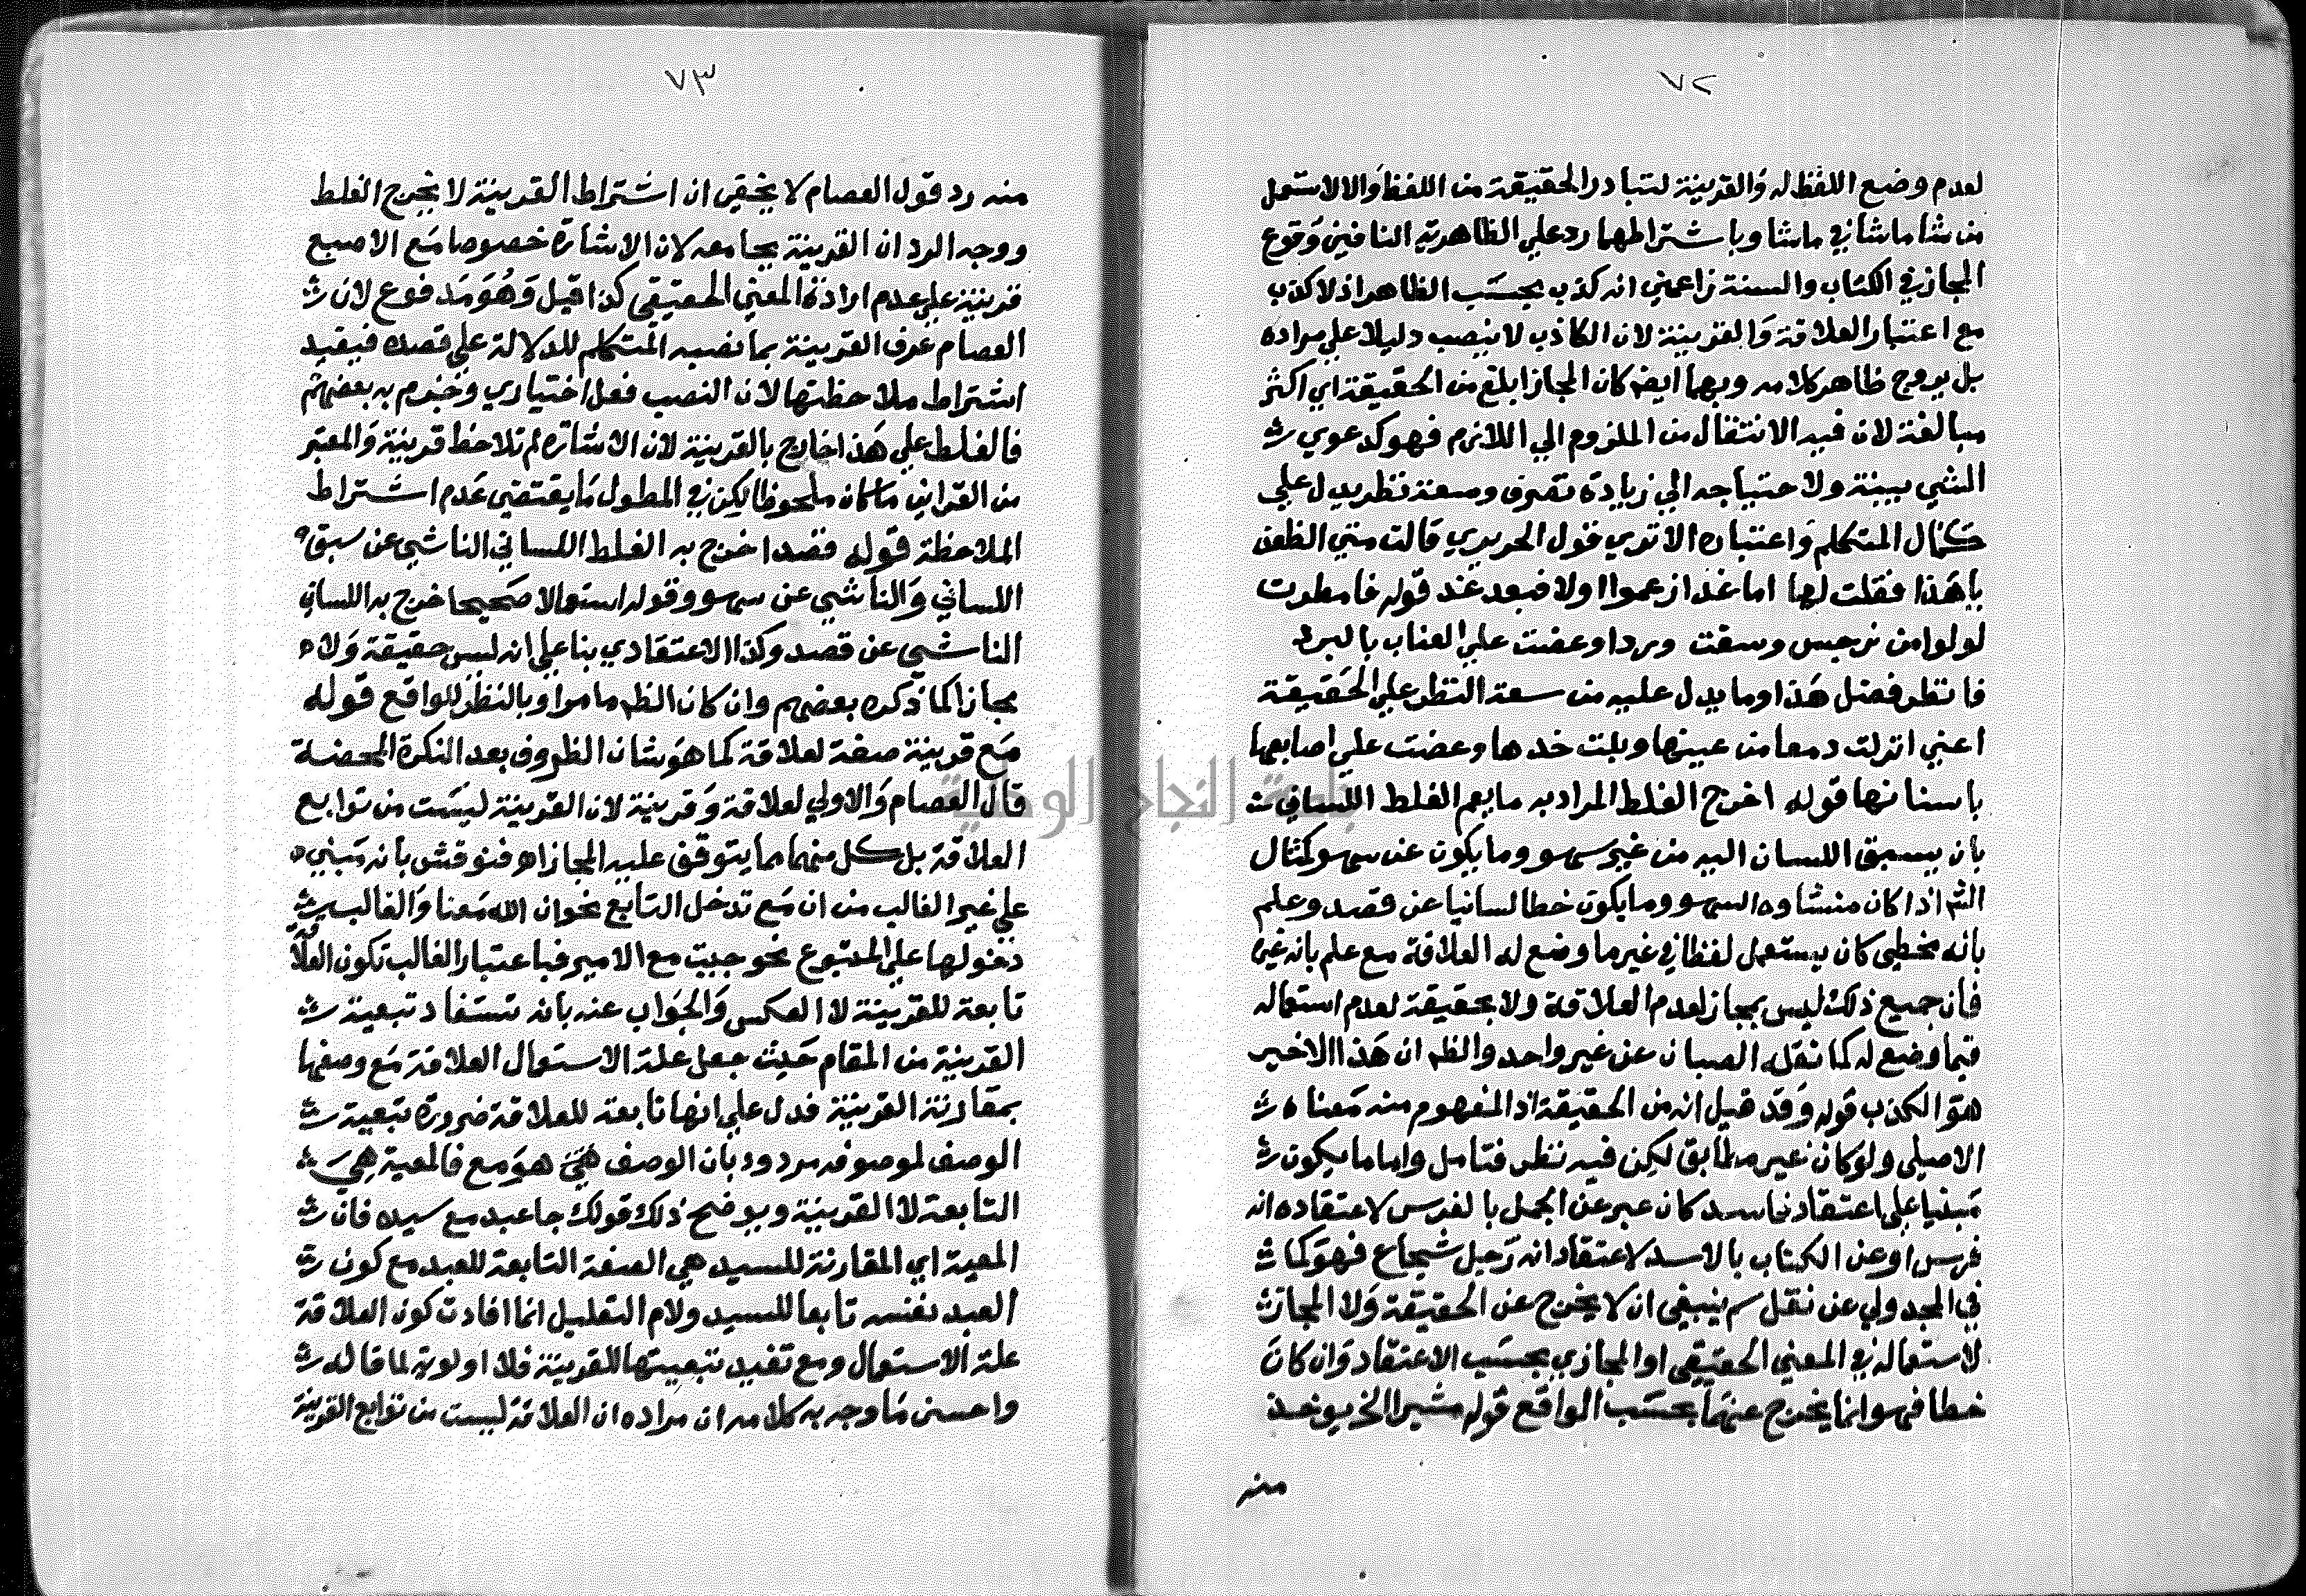 ٧٢
لعدم وضع اللفظ له والقرينة لتبادر الحقيقة من اللفظ والا لاستعمل
من شا ماشا في ماشا وباشتراطهما رد علي الظاهرية النافين وقوع
المجاز في الكتاب والسنة زاعمين انه كذب بحسب الظاهر اذ لا كذب
مع اعتبار العلاقة والقرينة لان الكاذب لا ينصب دليلا علي مراده
بل يروج ظاهر كلامه وبهما ايض كان المجاز ابلغ من الحقيقة اي اكثر
مبالغة لان فيه الانتقال من الملزوم الي اللازم فهو كدعوي
الشي ببينة ولاحتياجه الي زيادة تصرف وسعة نظر يدل علي
كمال المتكلم واعتباره الا تري قول الحريري قالت متي الظعن
يا هذا فقلت لها اما غدا زعموا اولا فبعد غد قوله فامطرت
لولوا من نرجس وسقت وردا وعضت علي العناب بالبرد
فانظر فضل هذا وما يدل عليه من سعة النظر علي الحقيقة
اعني انزلت دمعا من عينها وبلت خدها وعضت علي اصابعها
باسنانها قوله اخرج الغلط المراد به ما يعم الغلط اللساني
بان يسبق اللسان اليه من غير سهو وما يكون عن سهو كمثال
الش اذا كان منشاوه السهو وما يكون خطا لسانيا عن قصد وعلم
بانه مخطي كان يستعمل لفظا في غير ما وضع له العلاقة مع علم بانه غير
فان جميع ذلك ليس بمجاز لعدم العلاقة ولا بحقيقة لعدم استعماله
فيما وضع له كما نقله الصبان عن غير واحد والظ ان هذا الاخير
هو الكذب قوله وقد قيل انه من الحقيقة اذ المفهوم منه معناه
الاصلي ولو كان غير مطابق لكن فيه نظر فتامل واما ما يكون
مبنيا علي اعتقاد فاسد كان عبر عن الجمل بالفرس لاعتقاده انه
فرس او عن الكتاب بالاسد لاعتقاد انه رجل شجاع فهو كما
في المجدولي عن نقل سم ينبغي ان لا يخرج عن الحقيقة ولا المجاز
لاستعماله في المعني الحقيقي او المجازي بحسب الاعتقاد وان كان
خطا فهو انما يخرج عنهما بحسب الواقع قوله مشيرا الخ يوخذ
منه
٧٣
منه رد قول العصام لا يخفي ان اشتراط القرينة لا يخرج الغلط
ووجه الرد ان القرينة بجامعه لان الاشارة خصوصا مع الاصبع
قرينة علي عدم ارادة المعني الحقيقي كذا قيل وهو مدفوع لان
العصام عرف القرينة بما نصبه المتكلم للدلالة علي قصده فيفيد
اشتراط ملاحظتها لان النصب فعل اختياري وجزم به بعضهم
فالغلط علي هذا خارج بالقرينة لان الاشارة لم تلاحظ قرينة والمعتبر
من القراين ما كان ملحوظا لكن في المطول ما يقتضي عدم اشتراط
الملاحظة قوله قصدا خرج به الغلط اللساني الناشي عن سبق
اللساني والناشي عن سهو وقوله استعمالا صحيحا خرج به اللساني
الناشي عن قصد وكذا الاعتقادي بنا علي انه ليس حقيقة ولا
مجازا كما ذكره بعضهم وان كان الظ ما مر او بالنظر للواقع قوله
مع قرينة صفة لعلاقة كما هو شان الظروف بعد النكرة المحضة
قال العصام والاولي لعلاقة وقرينة لان القرينة ليست من توابع
العلاقة بل كل منهما مما يتوقف عليه المجاز اه فنوقش بانه مبني
علي غير الغالب من ان مع تدخل التابع نحو ان الله معنا والغالب
دخولها علي المتبوع نحو جيت مع الامير فباعتبار الغالب تكون العلا
تابعة للقرينة لا العكس والجواب عنه بانه تستفاد تبعية
القرينة من المقام حيث جعل علة الاستعمال العلاقة مع وصفها
بمقارنة القرينة فدل علي انها تابعة للعلاقة ضرورة تبعية
الوصف لموصوفه مردود بان الوصف هو مع فالمعية هي
التابعة لا القرينة ويوضح ذلك قولك جا عبد مع سيده فان
المعية اي المقارنة للسيد هي الصفة التابعة للعبد مع كون
العبد نفسه تابعا للسيد ولام التعليل انما افادت كون العلاقة
علة الاستعمال ومع تفيد تبعيتها للقرينة فلا اولوية لما قاله
واحسن ما وجه به كلامه ان مراده ان العلاقة ليست من توابع القرينة